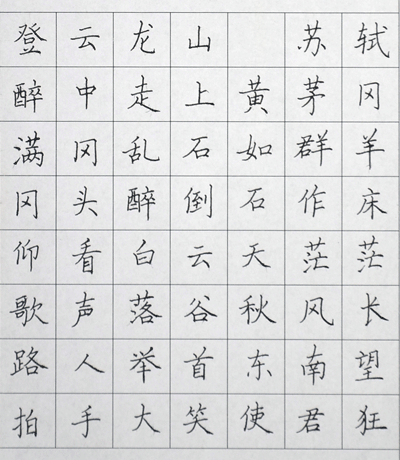 登云龙山 苏轼
醉中走上黄茅冈
满冈乱石如群羊
冈头醉倒石作床
仰看白云天茫茫
歌声落谷秋风长
路人举首东南望
拍手大笑使君狂